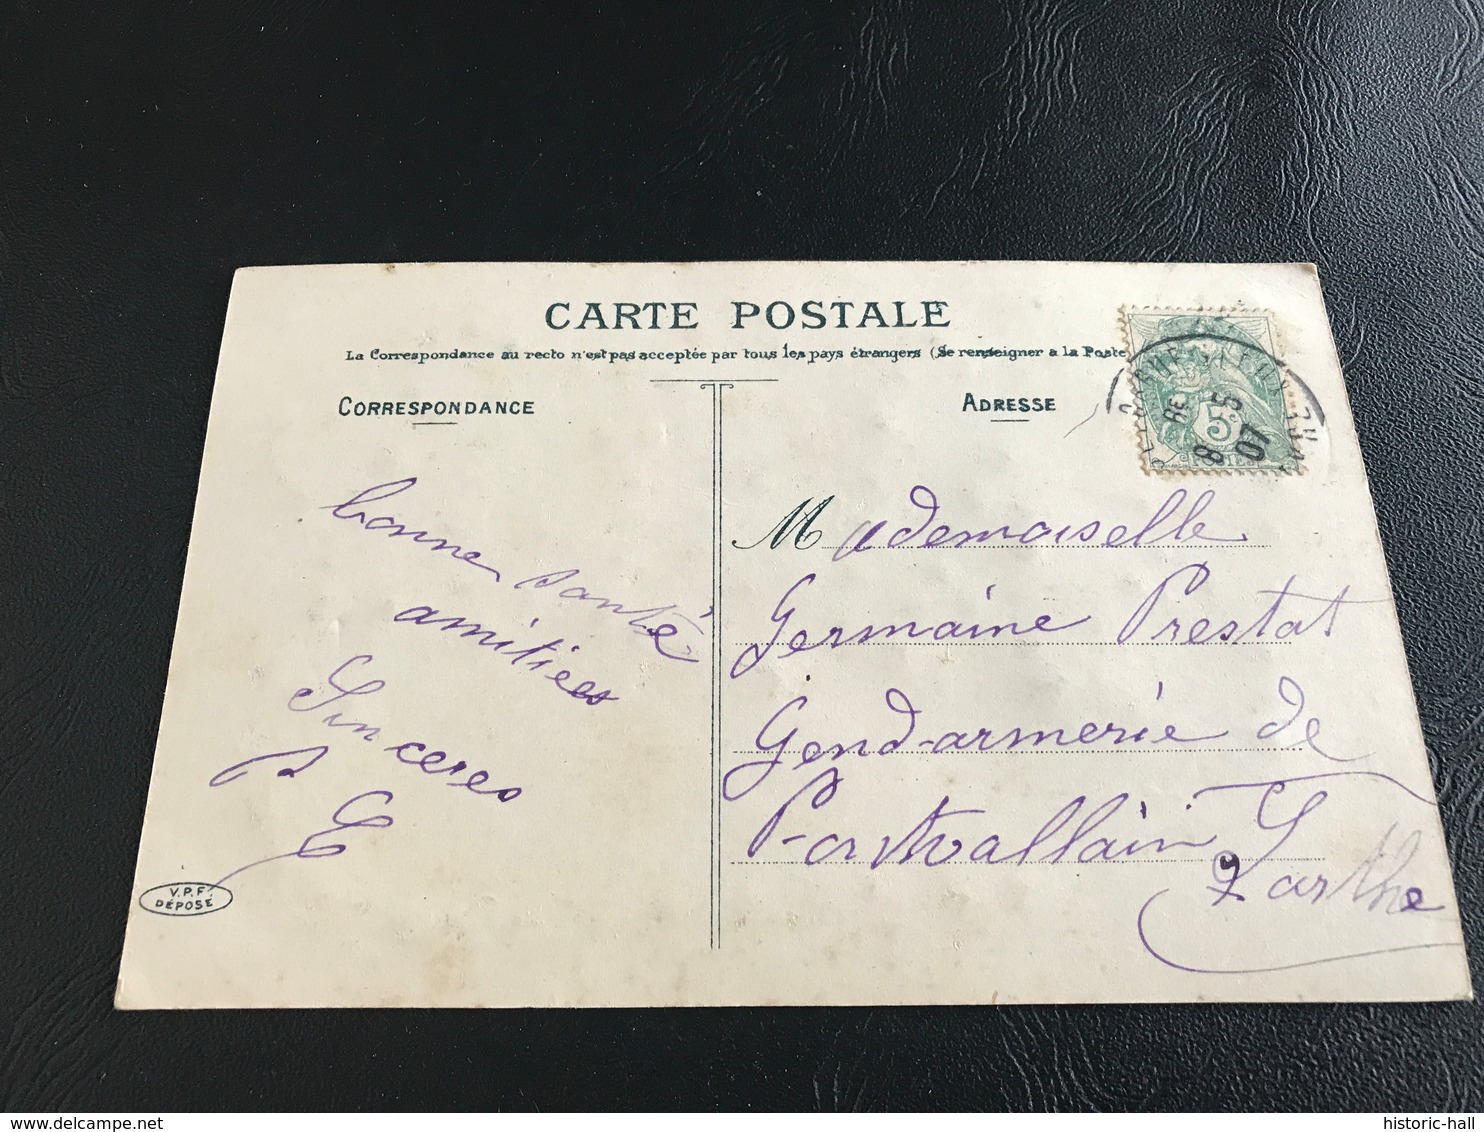 CARTE POSTALE
La Correspondance au recto n'est pas acceptée par tous les pays étrangers (Se renseigner a la Poste
CORRESPONDANCE
ADRESSE
5c
8
07
bonne santé
amitiées
Sinceres
V.P.F
DÉPOSÉ
Mademoiselle
Germaine Prestat
Gendarmerie de
Pontvallain
Sarthe
historic-hall